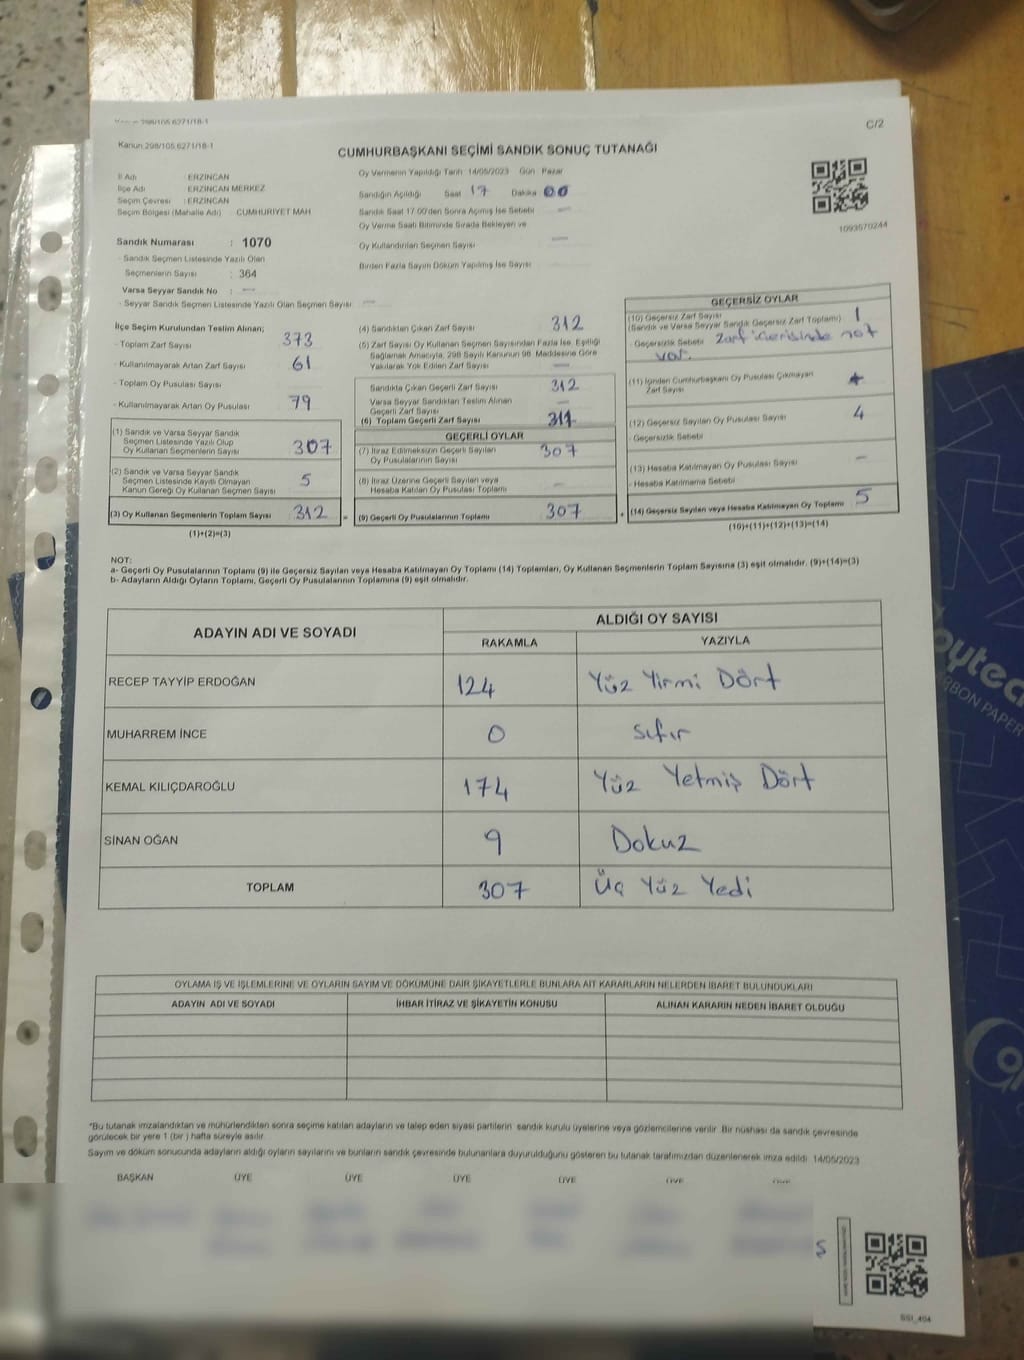 C/2
Kanun 298/105,6271/18-1
CUMHURBAŞKANI SEÇİMİ SANDIK SONUÇ TUTANAĞI
İl Adı : ERZİNCAN
İlçe Adı : ERZİNCAN MERKEZ
Seçim Çevresi : ERZİNCAN
Seçim Bölgesi (Mahalle Adı) : CUMHURİYET MAH
Oy Vermenin Yapıldığı Tarih 14/05/2023 Gün Pazar
Sandığın Açıldığı Saat 17 Dakika 00
Sandık Saat 17.00'den Sonra Açımış İse Sebebi —
Oy Verme Saati Bitiminde Sırada Bekleyen ve
Oy Kullandırılan Seçmen Sayısı —
Birden Fazla Sayım Döküm Yapılmış İse Sayısı
1093570244
Sandık Numarası : 1070
- Sandık Seçmen Listesinde Yazılı Olan
Seçmenlerin Sayısı : 364
Varsa Seyyar Sandık No : —
- Seyyar Sandık Seçmen Listesinde Yazılı Olan Seçmen Sayısı —
İlçe Seçim Kurulundan Teslim Alınan;
- Toplam Zarf Sayısı 373
- Kullanılmayarak Artan Zarf Sayısı 61
- Toplam Oy Pusulası Sayısı
- Kullanılmayarak Artan Oy Pusulası 79
(1) Sandık ve Varsa Seyyar Sandık
Seçmen Listesinde Yazılı Olup
Oy Kullanan Seçmenlerin Sayısı 307
(2) Sandık ve Varsa Seyyar Sandık
Seçmen Listesinde Kayıtlı Olmayan
Kanun Gereği Oy Kullanan Seçmen Sayısı 5
(3) Oy Kullanan Seçmenlerin Toplam Sayısı 312
(1)+(2)=(3)
(4) Sandıktan Çıkan Zarf Sayısı 312
(5) Zarf Sayısı Oy Kullanan Seçmen Sayısından Fazla İse, Eşitliği
Sağlamak Amacıyla, 298 Sayılı Kanunun 98. Maddesine Göre
Yakılarak Yok Edilen Zarf Sayısı —
Sandıkta Çıkan Geçerli Zarf Sayısı 312
Varsa Seyyar Sandıktan Teslim Alınan
Geçerli Zarf Sayısı —
(6) Toplam Geçerli Zarf Sayısı 311
GEÇERLİ OYLAR
(7) İtiraz Edilmeksizin Geçerli Sayılan
Oy Pusulalarının Sayısı 307
(8) İtiraz Üzerine Geçerli Sayılan veya
Hesaba Katılan Oy Pusulası Toplamı —
= (9) Geçerli Oy Pusulalarının Toplamı 307
GEÇERSİZ OYLAR
(10) Geçersiz Zarf Sayısı 1
(Sandık ve Varsa Seyyar Sandık Geçersiz Zarf Toplamı)
- Geçersizlik Sebebi Zarf içerisinde not
var.
(11) İçinden Cumhurbaşkanı Oy Pusulası Çıkmayan
Zarf Sayısı
(12) Geçersiz Sayılan Oy Pusulası Sayısı 4
- Geçersizlik Sebebi
(13) Hesaba Katılmayan Oy Pusulası Sayısı —
- Hesaba Katılmama Sebebi
+ (14) Geçersiz Sayılan veya Hesaba Katılmayan Oy Toplamı 5
(10)+(11)+(12)+(13)=(14)
NOT:
a- Geçerli Oy Pusulalarının Toplamı (9) ile Geçersiz Sayılan veya Hesaba Katılmayan Oy Toplamı (14) Toplamları, Oy Kullanan Seçmenlerin Toplam Sayısına (3) eşit olmalıdır. (9)+(14)=(3)
b- Adayların Aldığı Oyların Toplamı, Geçerli Oy Pusulalarının Toplamına (9) eşit olmalıdır.
ADAYIN ADI VE SOYADI ALDIĞI OY SAYISI
RAKAMLA YAZIYLA
RECEP TAYYİP ERDOĞAN 124 Yüz Yirmi Dört
MUHARREM İNCE 0 sıfır
KEMAL KILIÇDAROĞLU 174 Yüz Yetmiş Dört
SİNAN OĞAN 9 Dokuz
TOPLAM 307 Üç Yüz Yedi
OYLAMA İŞ VE İŞLEMLERİNE VE OYLARIN SAYIM VE DÖKÜMÜNE DAİR ŞİKAYETLERLE BUNLARA AİT KARARLARIN NELERDEN İBARET BULUNDUKLARI
ADAYIN ADI VE SOYADI İHBAR İTİRAZ VE ŞİKAYETİN KONUSU ALINAN KARARIN NEDEN İBARET OLDUĞU
*Bu tutanak imzalandıktan ve mühürlendikten sonra seçime katılan adayların ve talep eden siyasi partilerin sandık kurulu üyelerine veya gözlemcilerine verilir. Bir nüshası da sandık çevresinde
görülecek bir yere 1 (bir ) hafta süreyle asılır.
Sayım ve döküm sonucunda adayların aldığı oyların sayılarını ve bunların sandık çevresinde bulunanlara duyurulduğunu gösteren bu tutanak tarafımızdan düzenlenerek imza edildi 14/05/2023
BAŞKAN ÜYE ÜYE ÜYE ÜYE ÜYE
SSI_404
CARBON PAPER